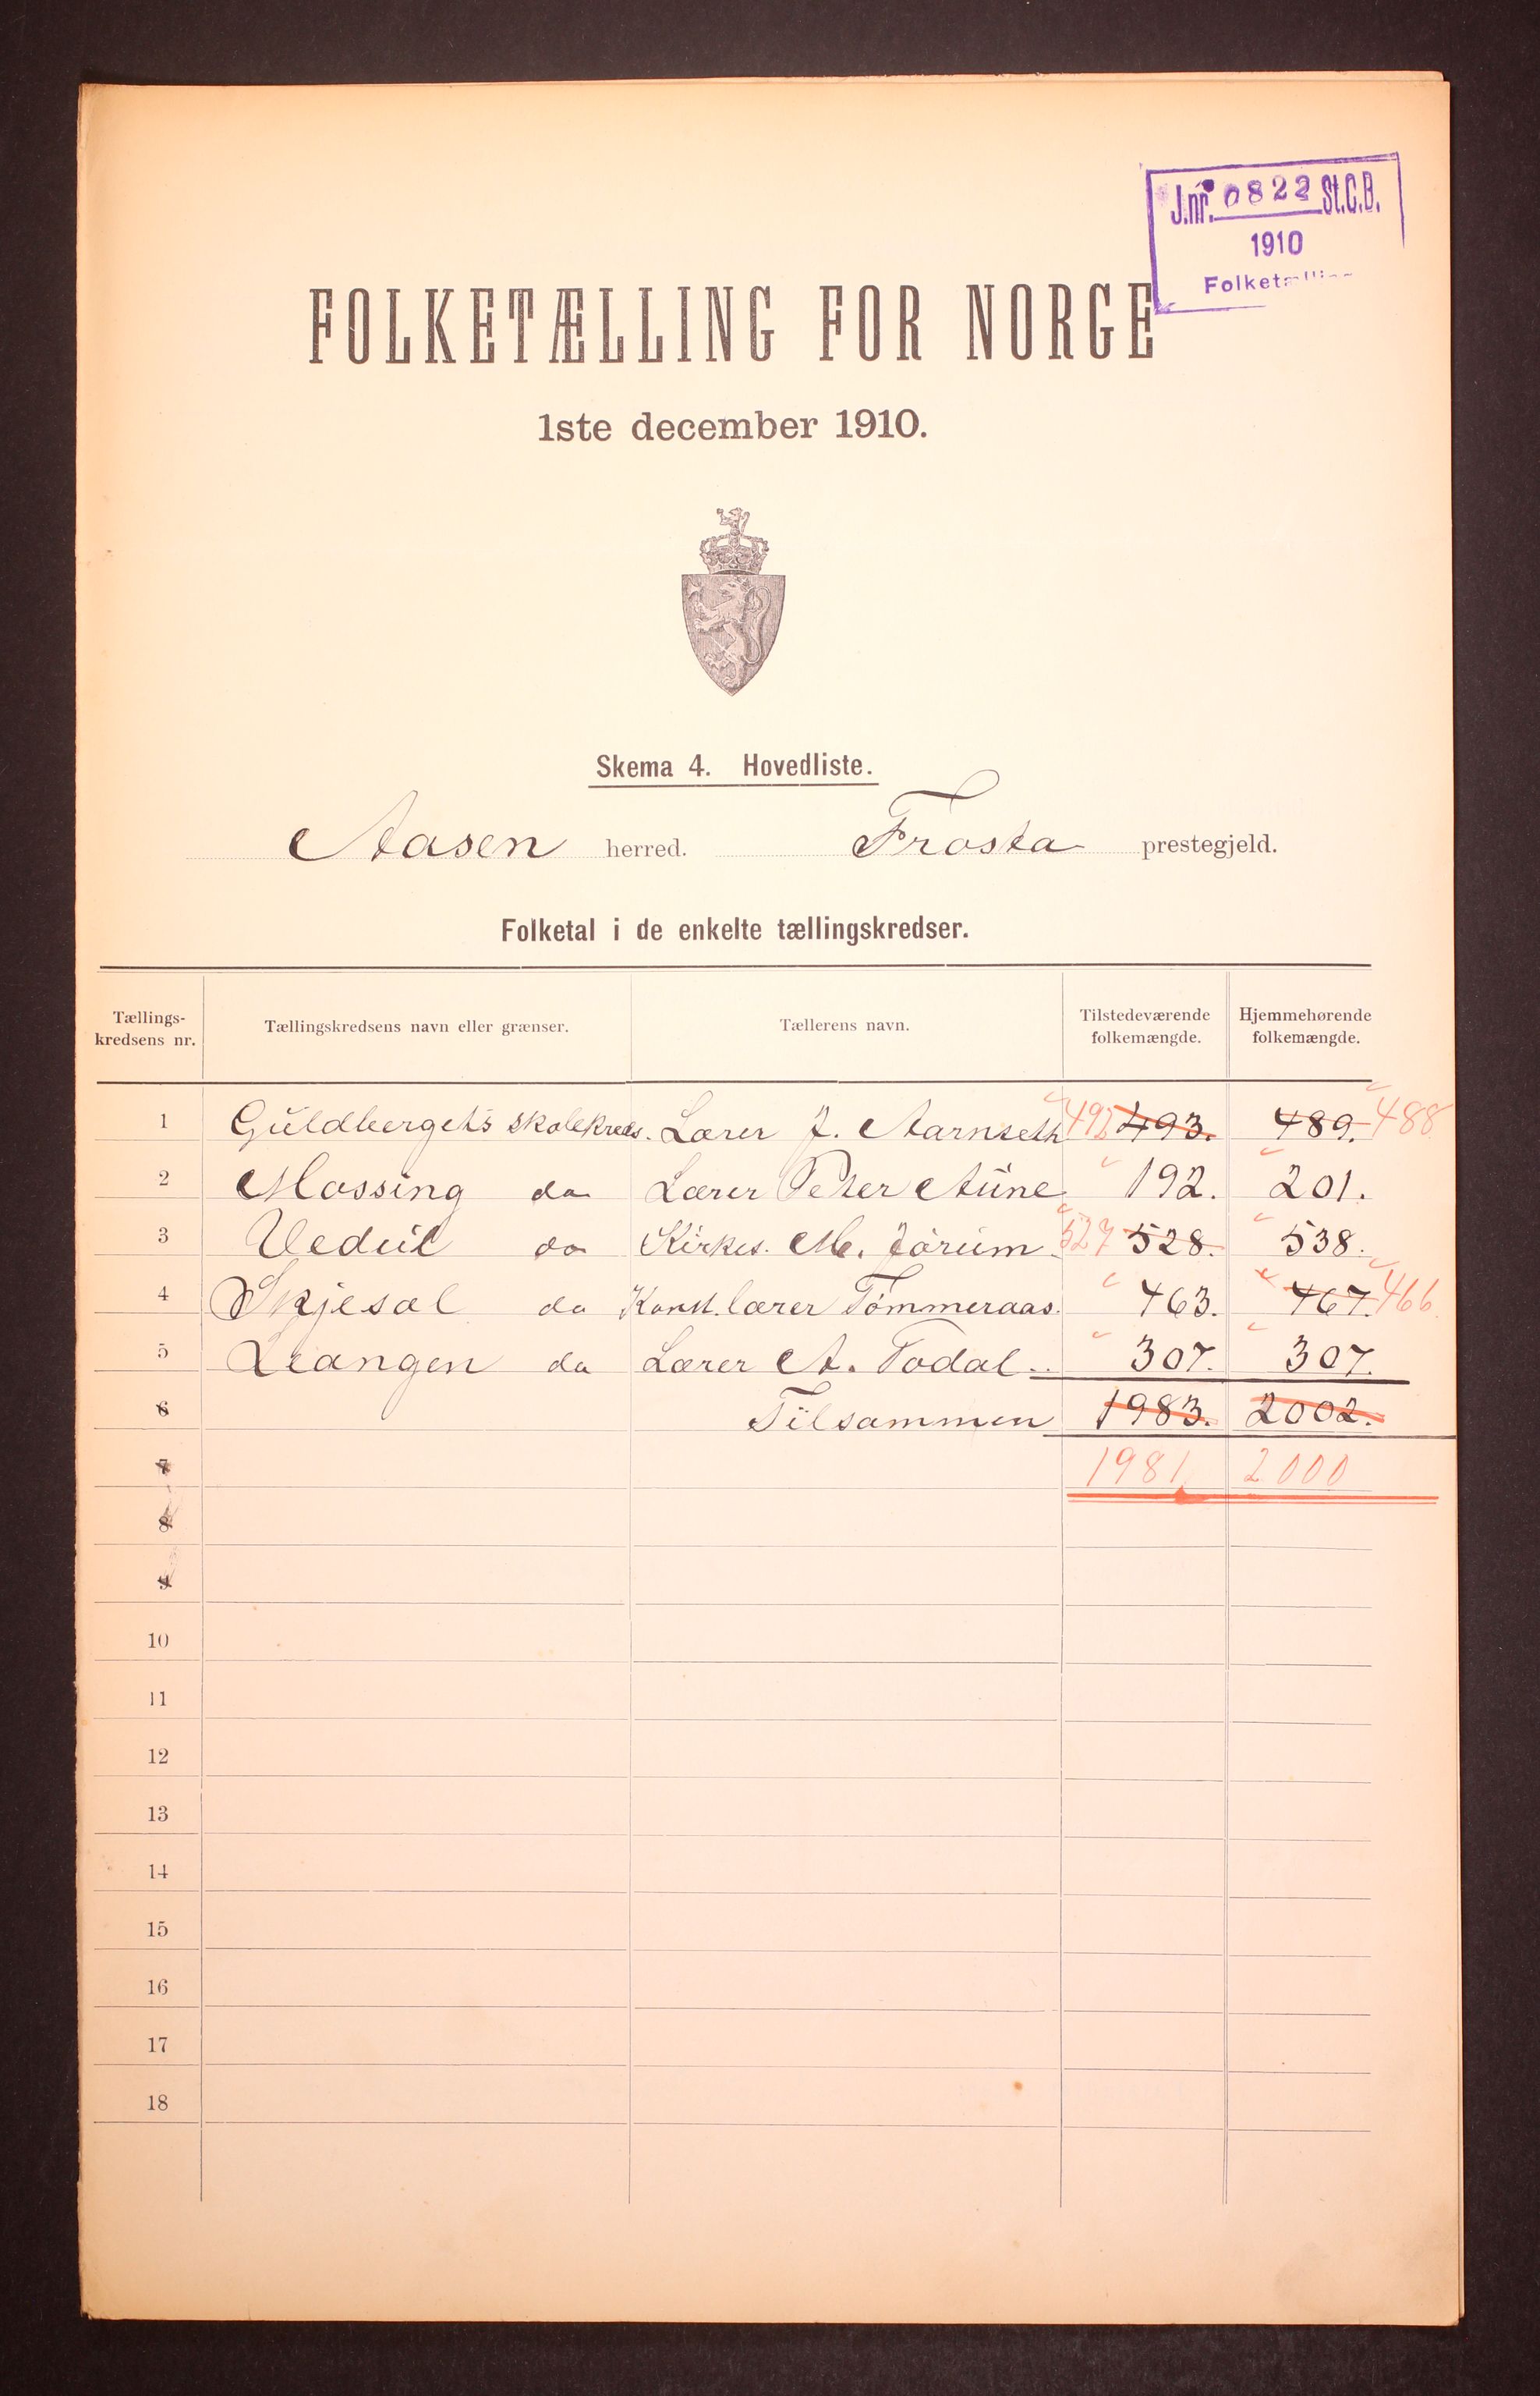 J.nr. 0822 St.C.B.
1910
Folketælling
FOLKETÆLLING FOR NORGE
1ste december 1910.
Skema 4. Hovedliste.
Aasen herred. Frosta prestegjeld.
Folketal i de enkelte tællingskredser.
Tællings-kredsens nr. Tællingskredsens navn eller grænser. Tællerens navn. Tilstedeværende folkemængde. Hjemmehørende folkemængde.
1 Guldbergets skolekreds. Lærer J. Aarnseth 492 493. 489. 488
2 Mossing do Lærer Peter Aune 192. 201.
3 Vedul do Kirkes. M. Jørum 527 528. 538.
4 Skjesal do Konst. lærer Tømmeraas. 463. 467. 466
5 Leangen do Lærer A. Todal 307. 307.
6 Tilsammen 1983. 2002.
7 1981 2000
8
9
10
11
12
13
14
15
16
17
18